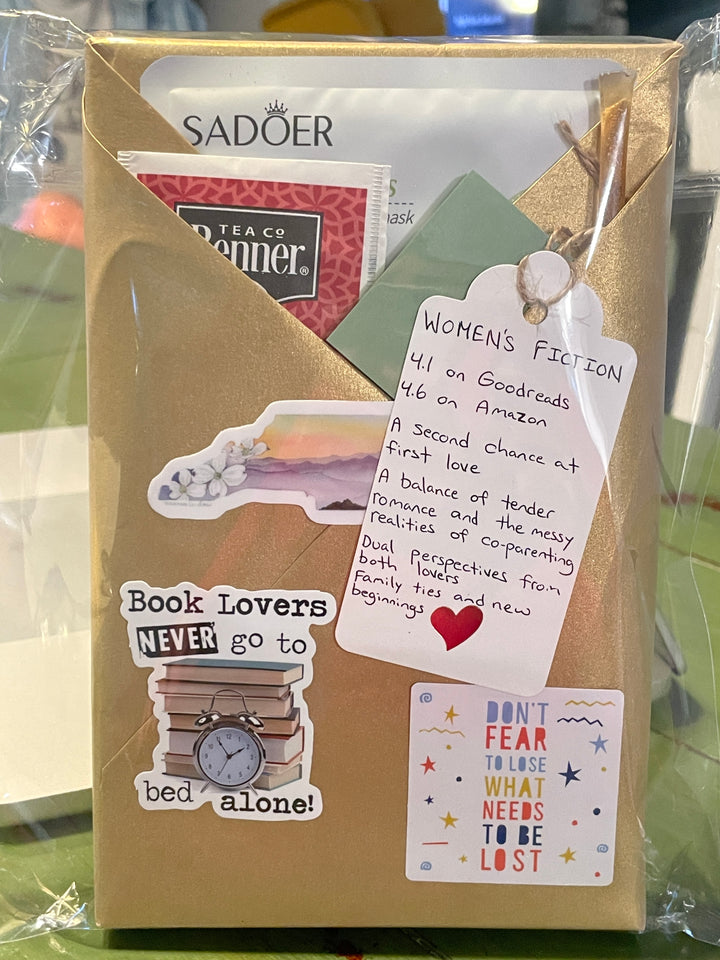 SADOER
mask
TEA CO
Benner.®
WOMEN'S FICTION
4.1 on Goodreads
4.6 on Amazon
A second chance at
first love
A balance of tender
romance and the messy
realities of co-parenting
Dual perspectives from
both lovers
Family ties and new
beginnings
Book Lovers
NEVER go to
bed alone!
DON'T
FEAR
TO LOSE
WHAT
NEEDS
TO BE
LOST